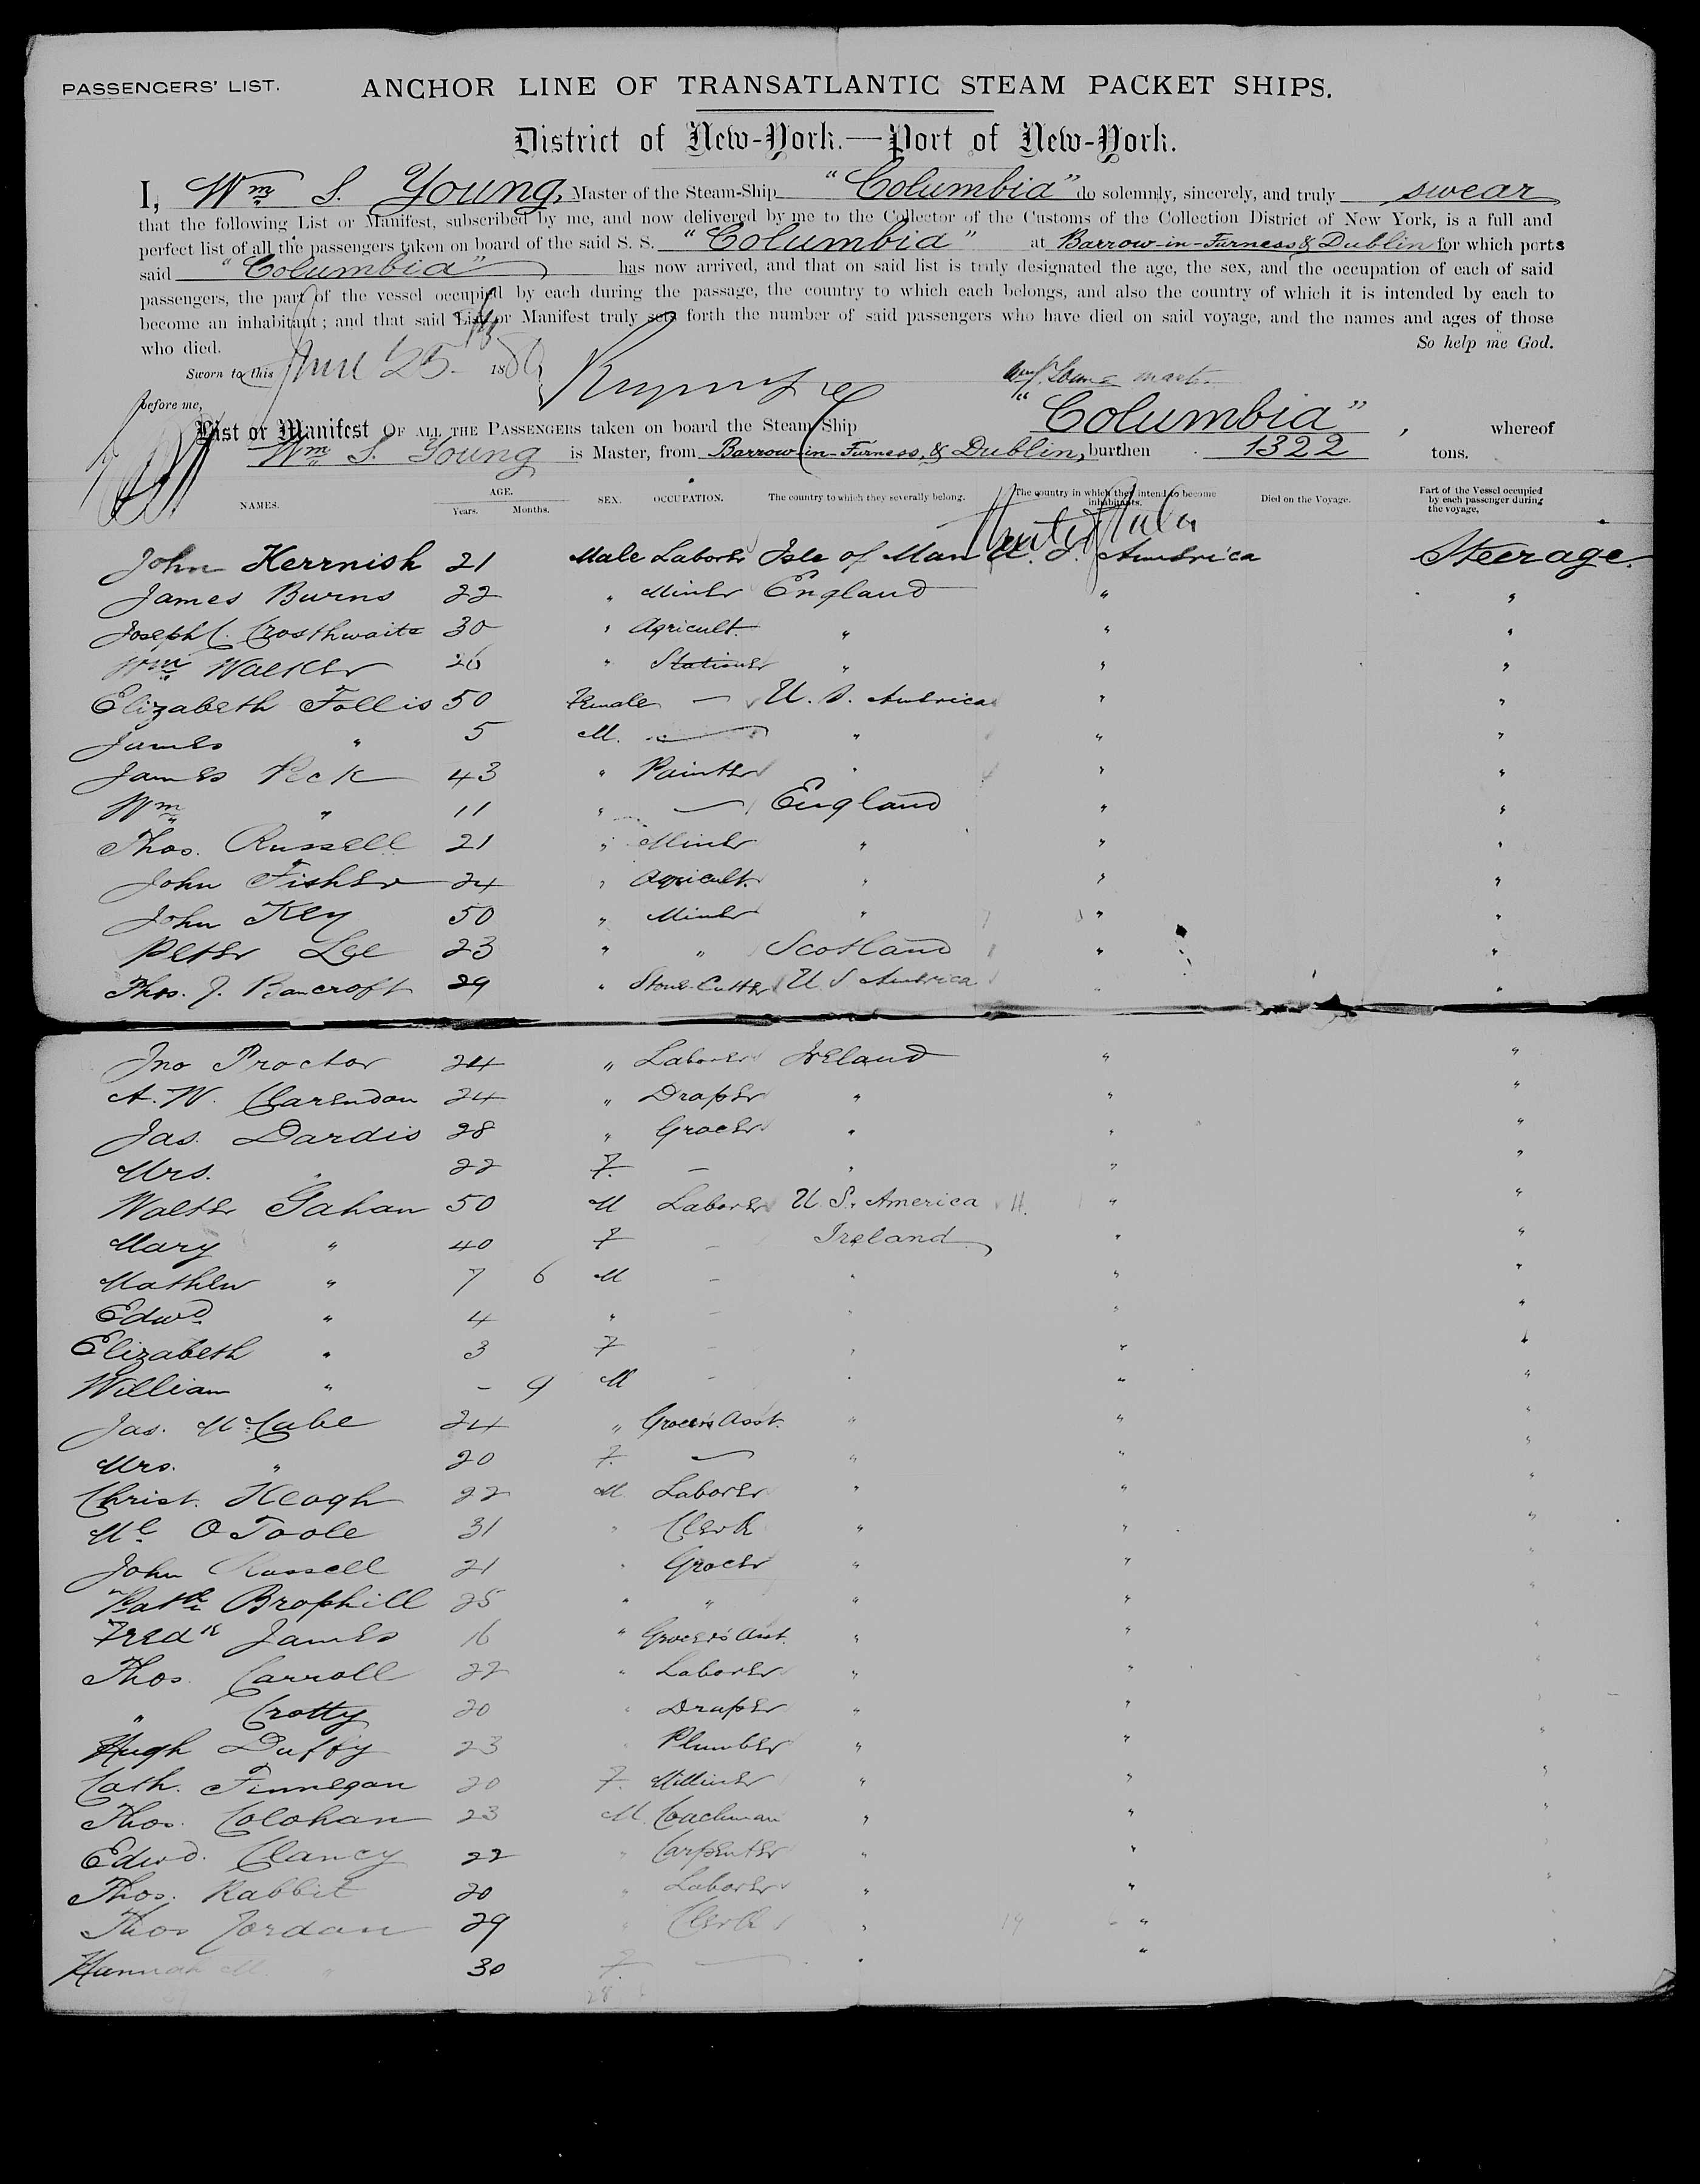 PASSENGERS' LIST. ANCHOR LINE OF TRANSATLANTIC STEAM PACKET SHIPS.
District of New-York.—Port of New-York.
I, Wm S. Young, Master of the Steam-Ship "Columbia" do solemnly, sincerely, and truly swear
that the following List or Manifest, subscribed by me, and now delivered by me to the Collector of the Customs of the Collection District of New York, is a full and
perfect list of all the passengers taken on board of the said S. S. "Columbia" at Barrow-in-Furness & Dublin for which ports
said "Columbia" has now arrived, and that on said list is truly designated the age, the sex, and the occupation of each of said
passengers, the part of the vessel occupied by each during the passage, the country to which each belongs, and also the country of which it is intended by each to
become an inhabitant; and that said List or Manifest truly sets forth the number of said passengers who have died on said voyage, and the names and ages of those
who died. So help me God.
Sworn to this June 25th 1880
before me,
List or Manifest OF ALL THE PASSENGERS taken on board the Steam Ship "Columbia", whereof
Wm S. Young is Master, from Barrow-in-Furness, & Dublin, burthen 1322 tons.
NAMES. AGE. Years. Months. SEX. OCCUPATION. The country to which they severally belong. The country in which they intend to become inhabitants. Died on the Voyage. Part of the Vessel occupied by each passenger during the voyage.
United States
John Kerrnish 21 Male Laborer Isle of Man U. S. America Steerage.
James Burns 22 " Miner England " "
Joseph C. Crosthwaite 30 " Agricult. " " "
Wm Walker 26 " Stationer " " "
Elizabeth Follis 50 Female — U. S. America " "
James " 5 M. — " " "
James Peck 43 " Painter " " "
Wm " 11 " — England " "
Thos. Russell 21 " Miner " " "
John Fisher 24 " Agricult. " " "
John Key 50 " Miner " " "
Peter Lee 23 " " Scotland " "
Thos. J. Bancroft 29 " Stone-Cutter U S America " "
Jno Proctor 24 " Laborer Ireland " "
A. W. Clarendon 24 " Draper " " "
Jas. Dardis 28 " Grocer " " "
Mrs. " 22 F. — " " "
Walter Gahan 50 M Laborer U. S. America " "
Mary " 40 F — Ireland " "
Mathew " 7 6 M — " " "
Edwd " 4 " — " " "
Elizabeth " 3 F — " " "
William " — 9 M — " " "
Jas. McCabe 24 " Grocer's Asst. " " "
Mrs. " 20 F. — " " "
Christ. Keogh 22 M. Laborer " " "
Ml O Toole 31 " Clerk " " "
John Russell 21 " Grocer " " "
Patk Brophill 25 " " " " "
Fredk James 16 " Grocer's Asst. " " "
Thos. Carroll 22 " Laborer " " "
" Crotty 20 " Draper " " "
Hugh Duffy 23 " Plumber " " "
Cath. Finnegan 20 F. Milliner " " "
Thos. Colohan 23 M. Coachman " " "
Edwd. Clancy 22 " Carpenter " " "
Thos. Rabbit 20 " Laborer " " "
Thos Jordan 29 " Clerk " " "
Hannah M. " 30 F. — " "